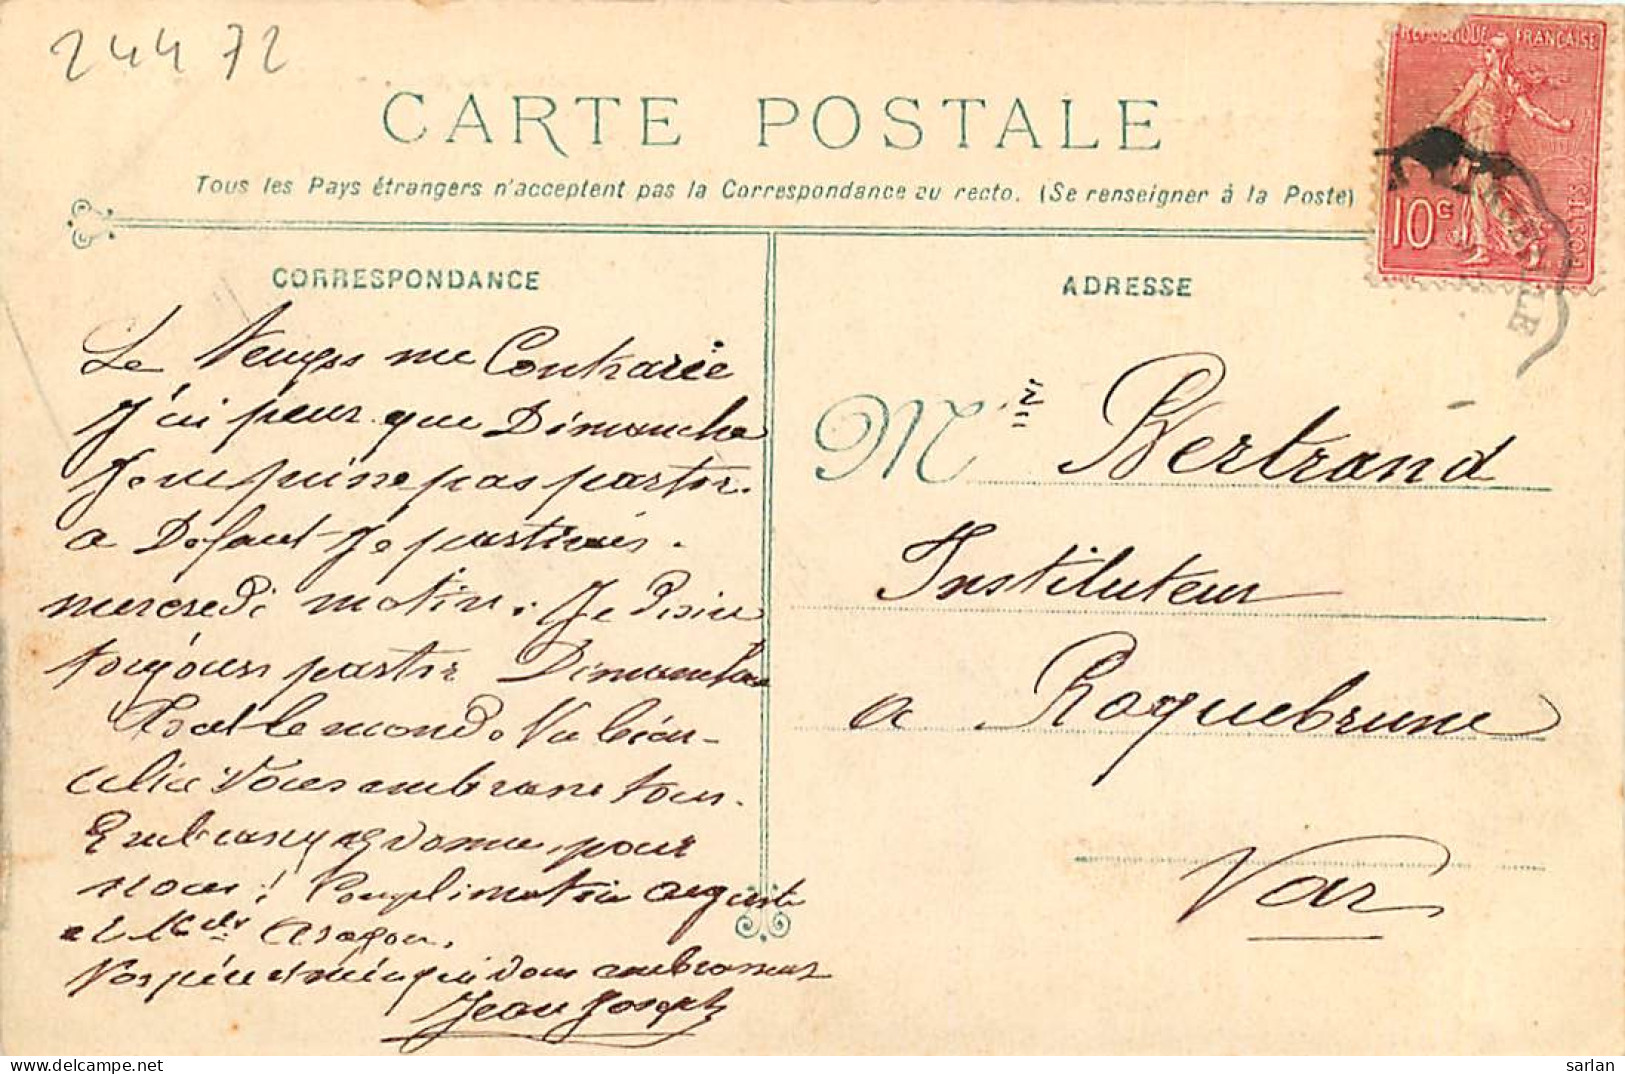 24472
CARTE POSTALE
Tous les Pays étrangers n'acceptent pas la Correspondance au recto. (Se renseigner à la Poste)
RÉPUBLIQUE FRANÇAISE
10c
POSTES
CORRESPONDANCE
Le Temps me Contrarie
J'ai peur que Dimanche
Je ne puisse pas partir.
a Defaut Je partirais.
mercredi matin. Je Désire
toujours partir Dimanche
tout le monde Va bien
vous embrasse tous.
Embrassez pour
nous! auguste
et Aragon.
Vos père et mère qui vous embrassent
Jean Joseph
ADRESSE
Mr Bertrand
Instituteur
a Roquebrune
Var
sarlan